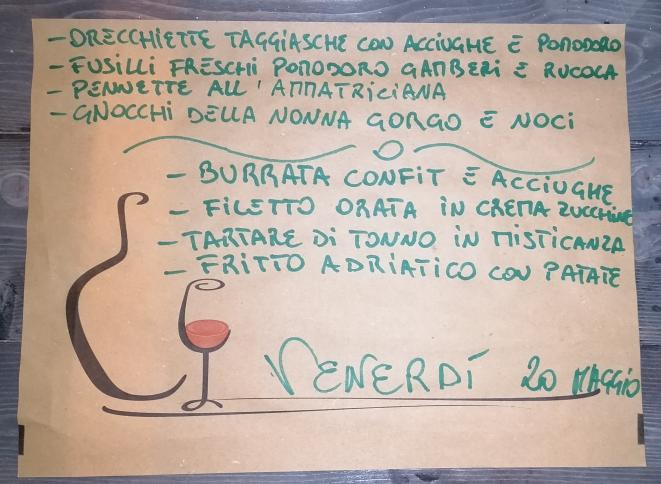 - ORECCHIETTE TAGGIASCHE CON ACCIUGHE E POMODORO
- FUSILLI FRESCHI POMODORO GAMBERI E RUCOLA
- PENNETTE ALL'AMATRICIANA
- GNOCCHI DELLA NONNA GORGO E NOCI
- BURRATA CONFIT E ACCIUGHE
- FILETTO ORATA IN CREMA ZUCCHINE
- TARTARE DI TONNO IN MISTICANZA
- FRITTO ADRIATICO CON PATATE
VENERDÍ 20 MAGGIO